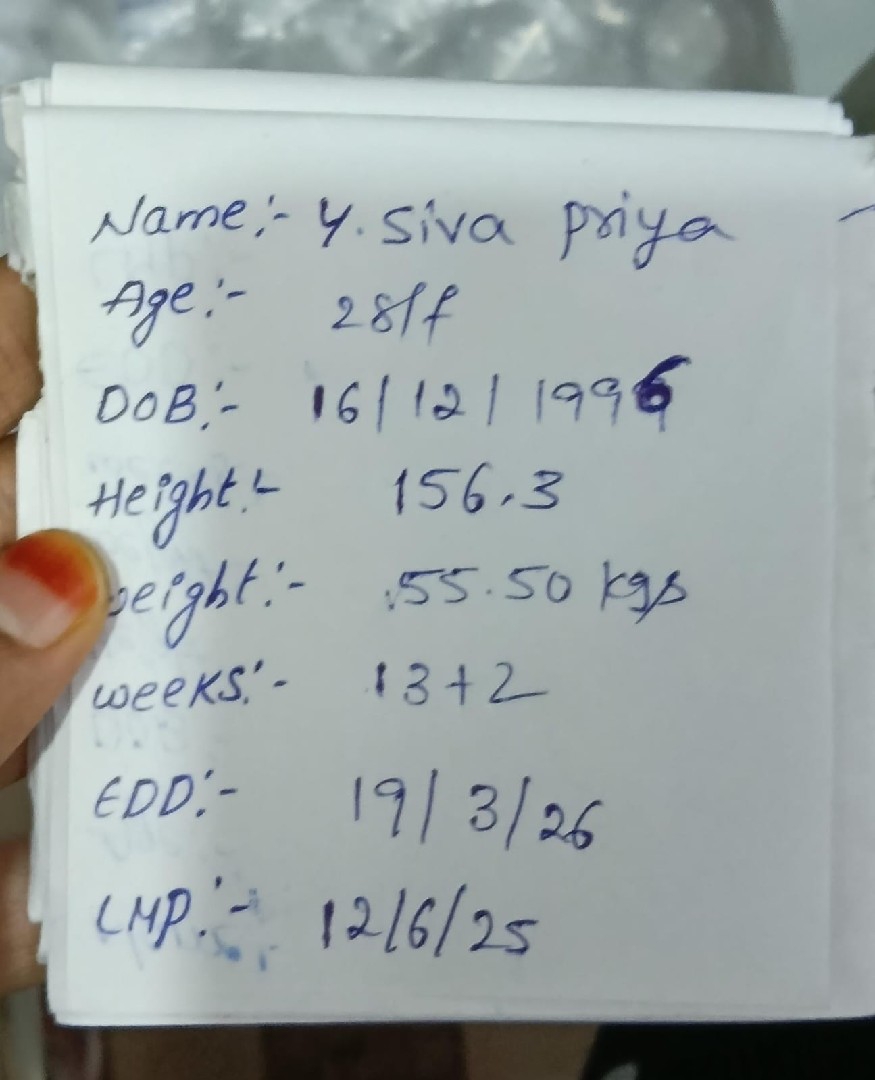 Name:- Y. Siva priya
Age:- 28/f
DOB:- 16/12/1996
Height:- 156.3
weight:- 55.50 kgs
weeks:- 13+2
EDD:- 19/3/26
LMP:- 12/6/25